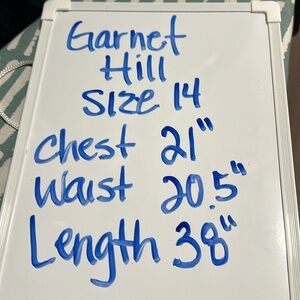 Garnet
Hill
Size 14
Chest 21"
Waist 20.5"
Length 38"